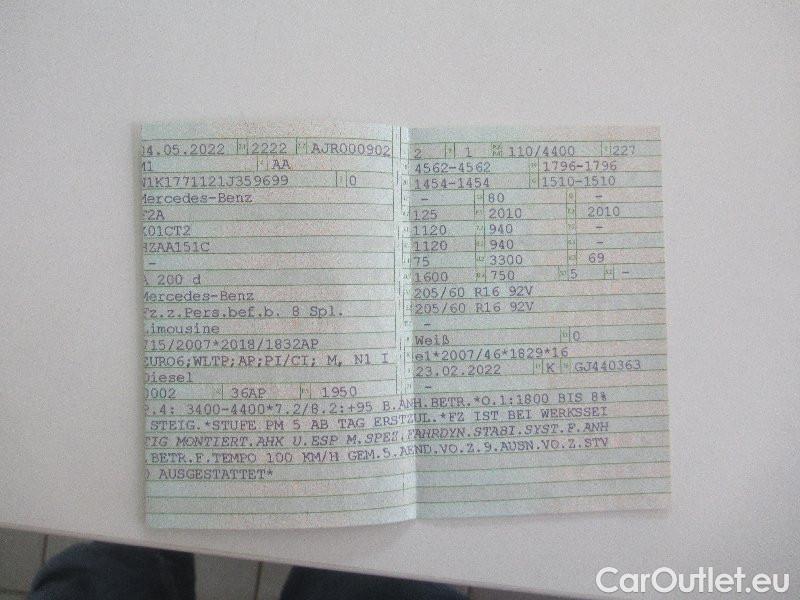 04.05.2022 2222 AJR000902
M1 AA
W1K1771121J359699 0
Mercedes-Benz
F2A
K01CT2
HZAA151C
-
A 200 d
Mercedes-Benz
Fz.z.Pers.bef.b. 8 Spl.
Limousine
715/2007*2018/1832AP
EURO6;WLTP;AP;PI/CI; M, N1 I
Diesel
0002 36AP 1950
P.4: 3400-4400*7.2/8.2:+95 B.ANH.BETR.*O.1:1800 BIS 8%
STEIG.*STUFE PM 5 AB TAG ERSTZUL.*FZ IST BEI WERKSSEI
TIG MONTIERT.AHK U.ESP M.SPEZ.FAHRDYN.STABI.SYST.F.ANH
.BETR.F.TEMPO 100 KM/H GEM.5.AEND.VO.Z.9.AUSN.VO.Z.STV
O AUSGESTATTET*
2 1 110/4400 227
4562-4562 1796-1796
1454-1454 1510-1510
- 80 -
125 2010 2010
1120 940 -
1120 940 -
75 3300 69
1600 750 5 -
205/60 R16 92V
205/60 R16 92V
-
Weiß 0
e1*2007/46*1829*16
23.02.2022 K GJ440363
-
CarOutlet.eu